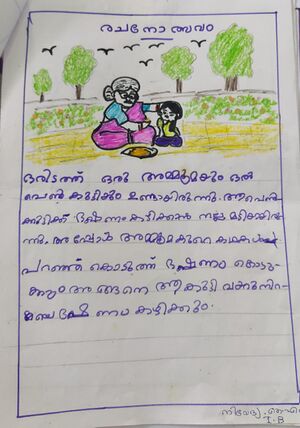 രചനോത്സവം
ഒരിടത്ത് ഒരു അമ്മൂമ്മയും ഒരു
പെൺ കുട്ടിയും ഉണ്ടായിരുന്നു. ആ പെൺ
കുട്ടിക്ക് ഭക്ഷണം കഴിക്കാൻ നല്ല മടിയായിരു
ന്നു. അപ്പോൾ അമ്മൂമ്മ കുറെ കഥകൾ
പറഞ്ഞ് കൊടുത്ത് ഭക്ഷണം കൊടു
ക്കും അങ്ങനെ ആ കുട്ടി വയറുനിറ
ച്ചെ ഭക്ഷണം കഴിക്കും.
നിവേദ്യ
I. B